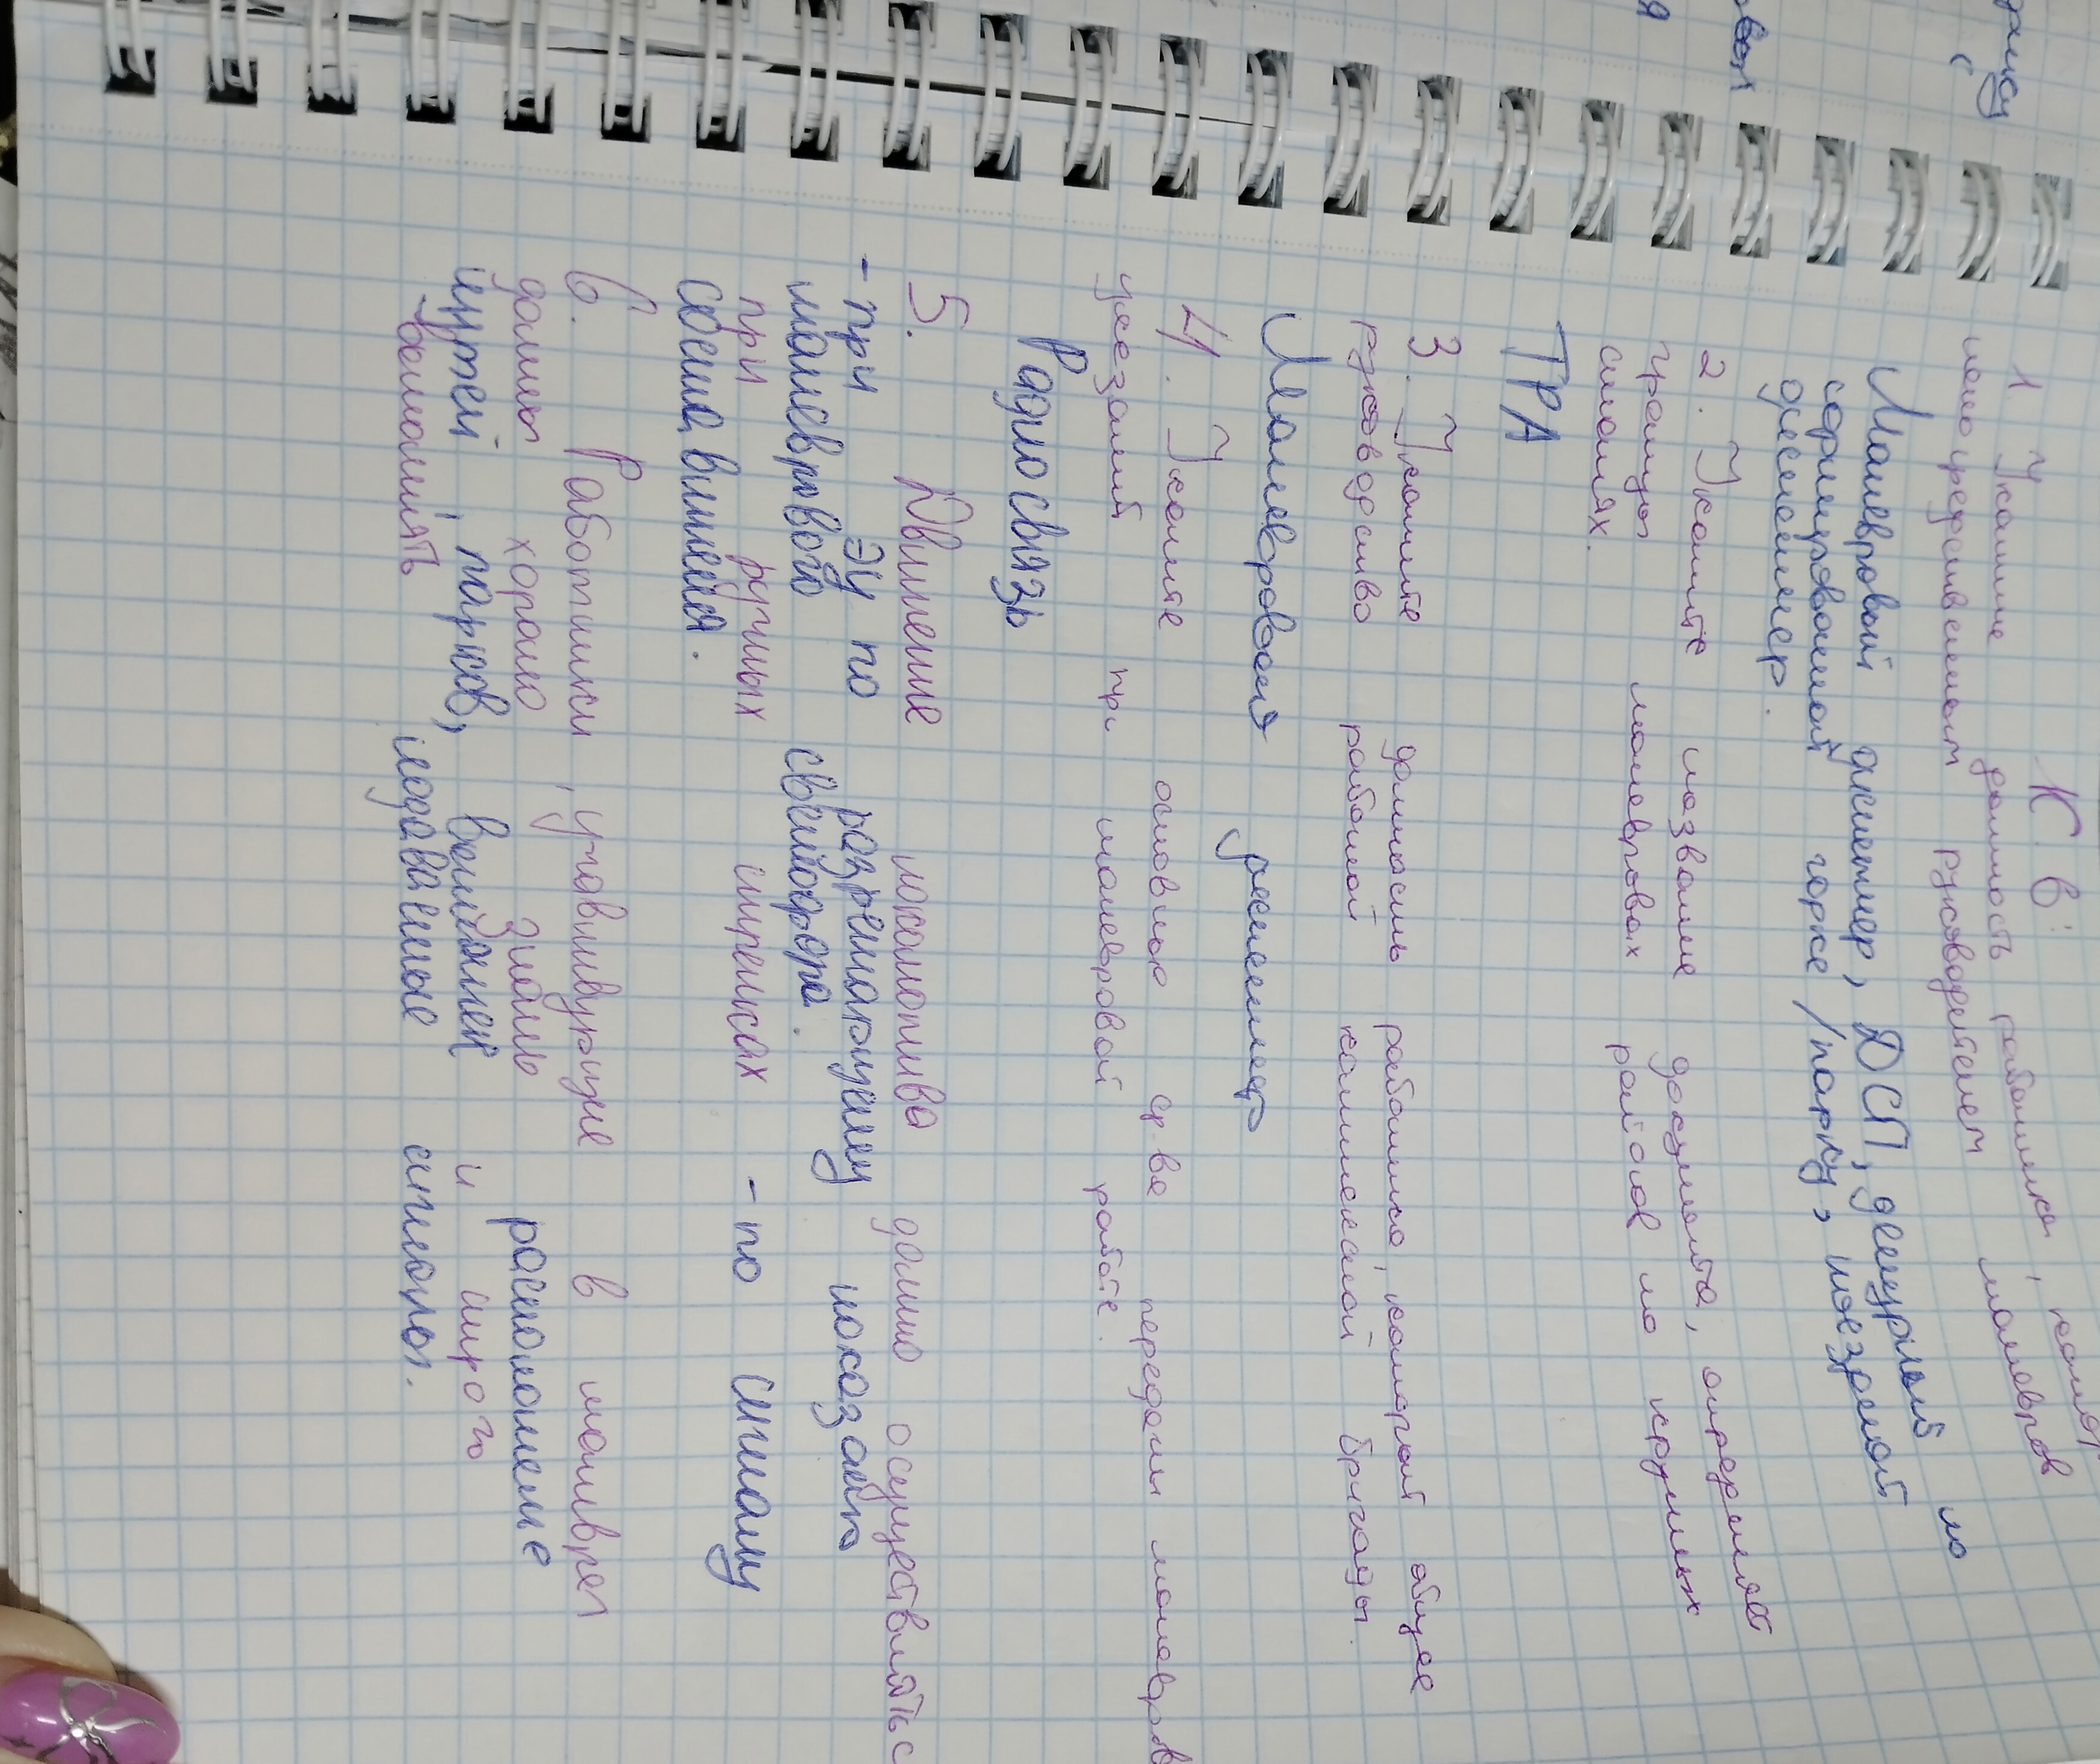 К. В.
1. Укажите должность работника, котор
непосредственным руководителем маневров
Маневровый диспетчер, ДСП, дежурный по
сортировочной горке /парку, поездной
диспетчер.
2. Укажите название документа, определяет
границы маневровых районов на крупных
станциях.
ТРА
3. Укажите должность работника, который общее
руководство работой комплексной бригады.
Маневровый диспетчер
4. Укажите основные ср-ва передачи маневров
указаний при маневровой работе.
Радиосвязь
5. Движение локомотива должно осуществлятьс
- при ЭЦ по разрешающему показанию
маневрового светофора.
при ручных стрелках - по сигналу
составителя.
6. Работники, участвующие в маневрах
должны хорошо знать расположение
путей, парков, негабаритных и
выполнять подаваемые сигналы.